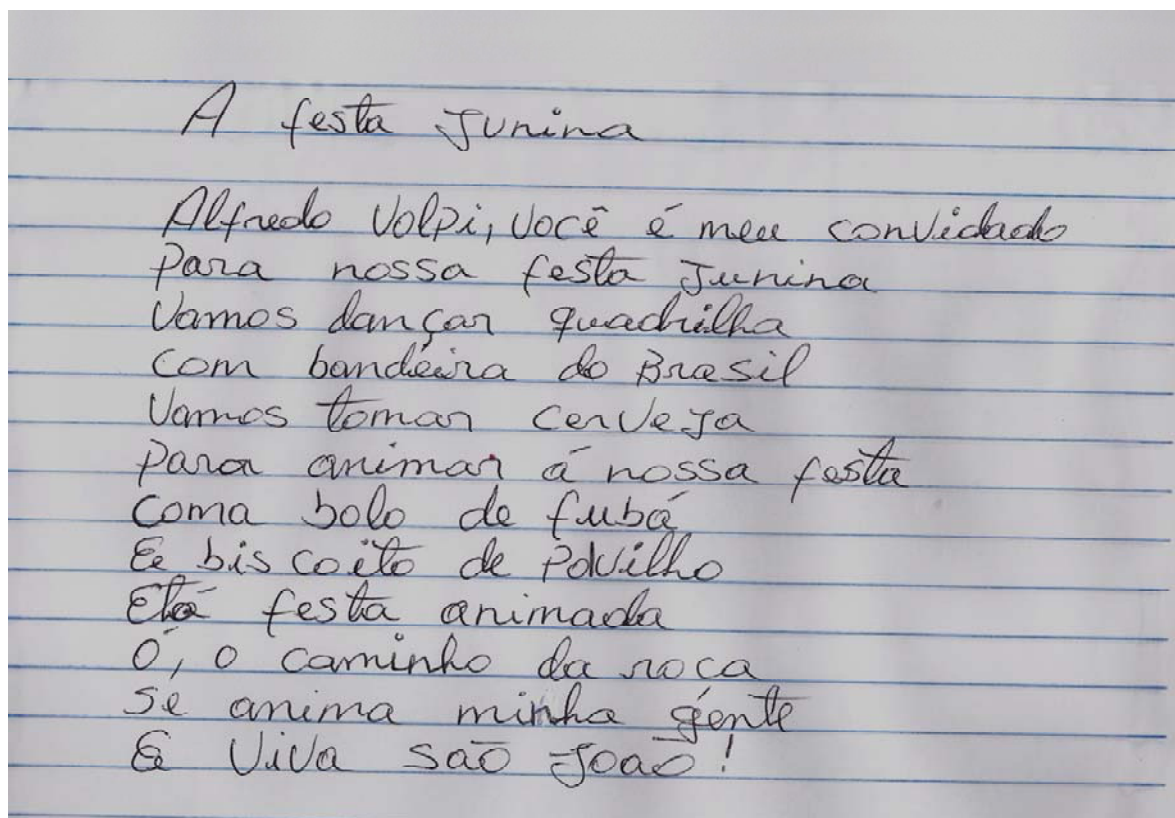 A festa Junina
Alfredo Volpi, você é meu convidado
para nossa festa Junina
Vamos dançar quadrilha
com bandeira do Brasil
Vamos tomar cerveja
para animar á nossa festa
Coma bolo de fubá
E biscoito de polvilho
Etá festa animada
Ó, o caminho da roca
Se anima minha gente
E viva são João!